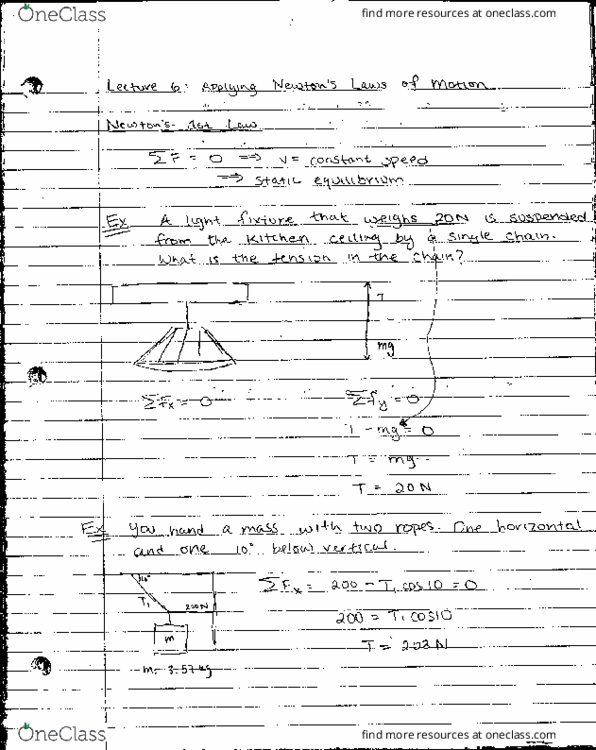 OneClass
find more resources at oneclass.com
Lecture 6: Applying Newton's Laws of Motion
Newton's 1st Law
ΣF = 0 ⇒ v = constant speed
⇒ static equilibrium
Ex A light fixture that weighs 20N is suspended
from the kitchen ceiling by a single chain.
What is the tension in the chain?
T
mg
ΣFx = 0
ΣFy = 0
T - mg = 0
T = mg
T = 20 N
Ex You hand a mass with two ropes. One horizontal
and one 10° below vertical.
10°
T₁
200N
m
m: 3.57 kg
ΣFx = 200 - T₁ cos10 = 0
200 = T₁ cos10
T = 203 N
OneClass
find more resources at oneclass.com